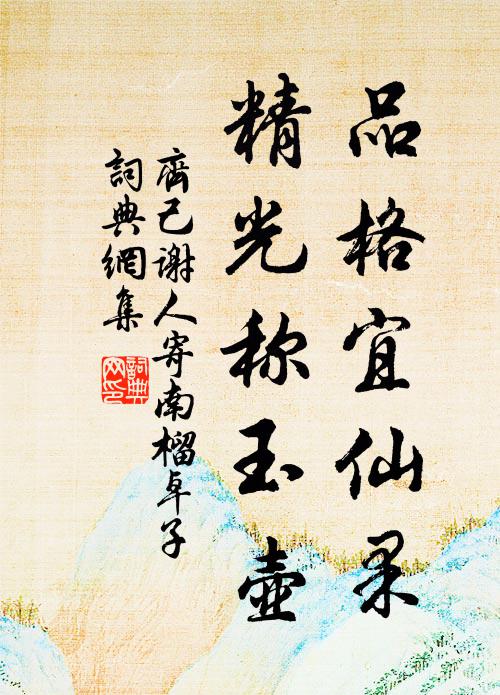 品格宜仙果
精光称玉壺
齊己谢人寄南榴卓子
詞典網集
詞典网印